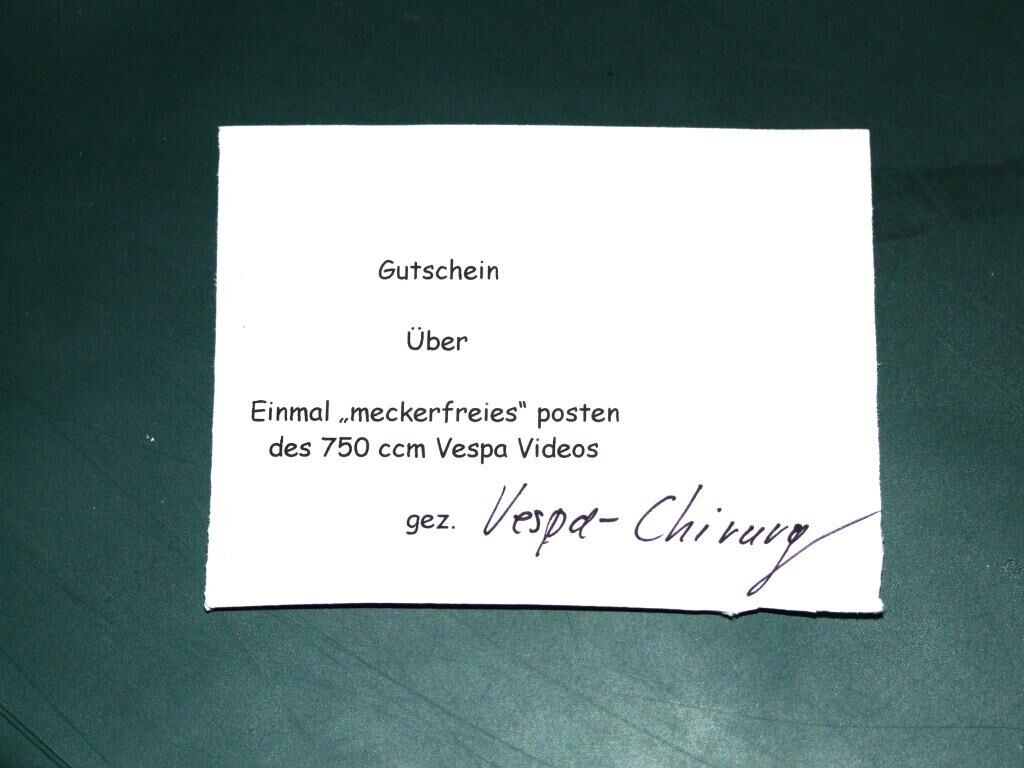 Gutschein
Über
Einmal „meckerfreies“ posten
des 750 ccm Vespa Videos
gez. Vespa-Chirurg